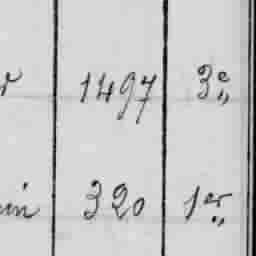 r 1497 3e
in 320 1er